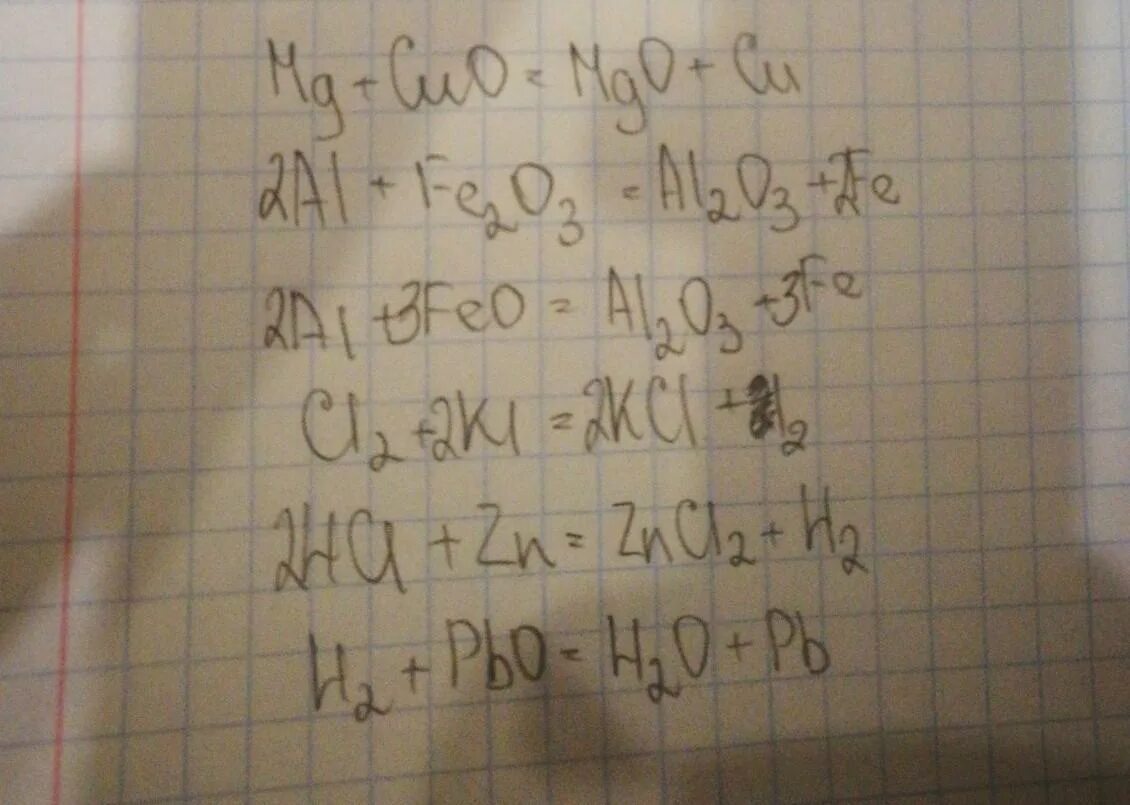 Mg + CuO = MgO + Cu
2Al + Fe₂O₃ = Al₂O₃ + 2Fe
2Al + 3FeO = Al₂O₃ + 3Fe
Cl₂ + 2KI = 2KCl + I₂
2HCl + Zn = ZnCl₂ + H₂
H₂ + PbO = H₂O + Pb